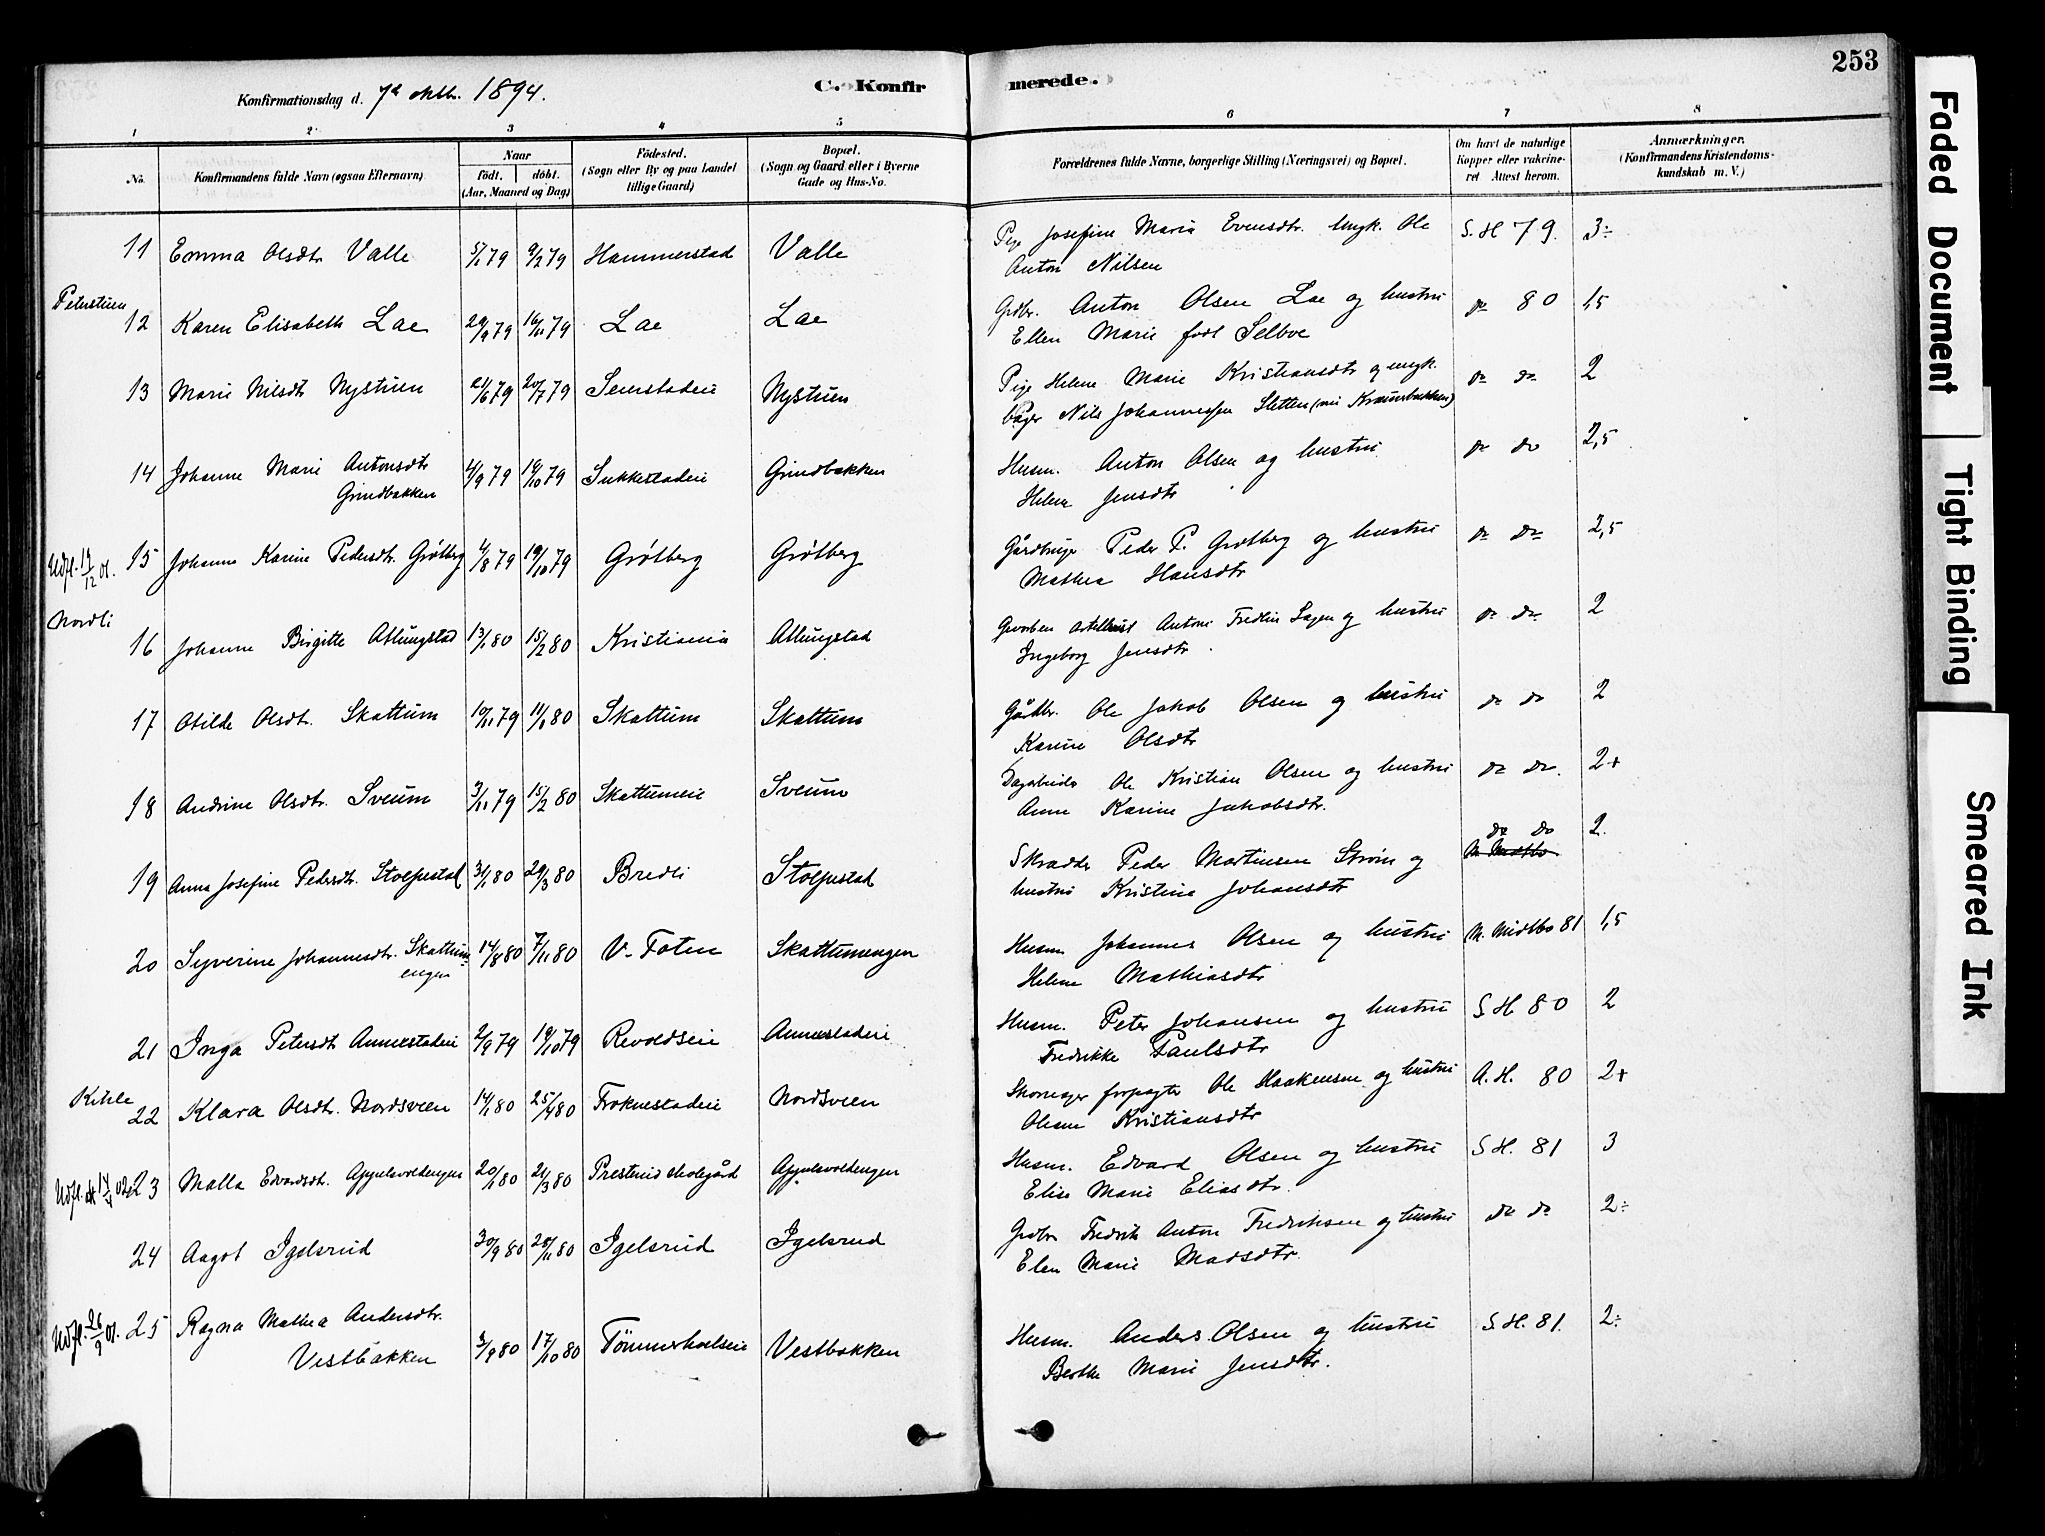 253
Konfirmationsdag d. 7d oktb. 1894.
C. Konfirmerede.
1 2 3 4 5 6 7 8
No. Konfirmandens fulde Navn (ogsaa Efternavn) Naar födt. döbt. (Aar, Maaned og Dag) Födested. (Sogn eller By og paa Landet tillige Gaard) Bopæl. (Sogn og Gaard eller i Byerne Gade og Hus-No. Forældrenes fulde Navne, borgerlige Stilling (Næringsvei) og Bopæl. Om havt de naturlige Kopper eller vakcineret Attest herom. Anmærkninger. (Konfirmandens Kristendomskundskab m. V.)
11 Emma Olsdtr Valle 5/1 79 9/2 79 Hammerstad Valle Pige Josefine Marie Evensdtr. Ungk. Ole S. H 79. 3÷
Anton Nilsen
Peterstuen
12 Karen Elisabeth Lae 29/9 79 16/11 79 Lae Lae Grdbr. Anton Olsen Lae og hustru do 80 1,5
Ellen Marie født Selboe
13 Marie Nilsdt Nystuen 21/6 79 20/7 79 Seierstadeie Nystuen Pige Helene Marie Kristiansdtr og ungk. do do 2
bager Nils Johannessen Sletten
14 Johanne Marie Antonsdtr 4/9 79 19/10 79 Sukkestadeie Grindbakken Husm. Anton Olsen og hustru do do 2,5
Grindbakken Helene Jensdtr
Udfl. 17/12 01. 15 Johanne Karine Pedersdtr. Grøtberg 4/8 79 19/10 79 Grøtberg Grøtberg Gårdbruger Peder P. Grøtberg og hustru do do 2,5
Mathea Hansdtr
Nordli
16 Johanne Birgitte Atlungstad 13/1 80 15/2 80 Kristiania Atlungstad Anton Fredrik og hustru do do 2
Ingeborg Jensdtr.
17 Otilde Olsdtr. Skattum 10/11 79 11/1 80 Skattum Skattum Gårdbr. Ole Jakob Olsen og hustru do do 2
Karine Olsdtr
18 Andrine Olsdtr. Sveum 3/11 79 15/2 80 Skattumeie Sveum Dagarbeider Ole Kristian Olsen og hustru do do. 2+
Anne Karine Jakobsdtr.
19 Anna Josefine Pedersdtr. Stolpestad 31/1 80 29/3 80 Bredli Stolpestad Skrædder Peder Martinsen Strøm og do do 2.
hustru Kristine Johansdtr M. Midtbo
20 Syverine Johannesdtr. Skattum- 14/8 80 7/11 80 V-Toten Skattumengen Husm Johannes Olsen og hustru M. Midtbo 81 1,5
engen Helene Mathiasdtr
21 Inga Petersdt Annerstadeie 2/9 79 19/10 79 Revoldseie Annerstadeie Husm. Peter Johansen og hustru S H 80 2
Fredrikke Paulsdtr
Kihle
22 Klara Olsdtr. Nordsveen 14/1 80 25/4 80 Froknestadeie Nordsveen Skomager forpagter Ole Haakensen og hustru A. H. 80 2+
Oleane Kristiansdtr
23 Malla Edvardsdtr. Appelsvoldengen 20/1 80 21/3 80 Appelsvoldengen Husm. Edvard Olsen og hustru S H. 81 3
Elise Marie Eliasdtr.
24 Aagot Igelsrud 30/9 80 28/11 80 Igelsrud Igelsrud Grdbr Fredrik Anton Fredriksen og hustru do do 2÷
Elen Marie Madsdtr.
Udfl. 26/9 01. 25 Ragna Mathea Andersdtr. 3/9 80 17/10 80 Tömmerholseie Vestbakken Husm. Anders Olsen og hustru S. H. 81. 2÷
Vestbakken Berthe Marie Jensdtr.
Faded Document
Tight Binding
Smeared Ink